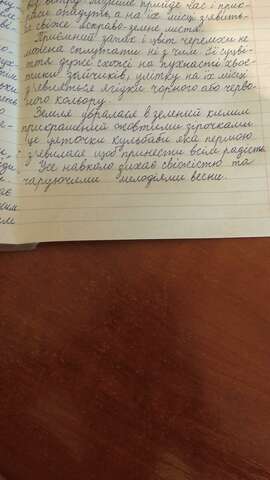 прийде час і прик-
раси опадуть, а на їх місці з'явить-
ся свіже яскраво-зелене листя.
Приємний запах і цвіт черемхи не
можна сплутати ні з чим. Її суцві-
ття дуже схожі на пухнасті хвос-
тики зайчиків, улітку на їх місці
з'являться ягідки чорного або черво-
ного кольору.
Земля вбралася в зелений килим
прикрашений жовтими зірочками.
Це квіточки кульбаби яка першою
з'явилася щоб принести всім радість.
Усе навколо дихає свіжістю та
чаруючими мелодіями весни.